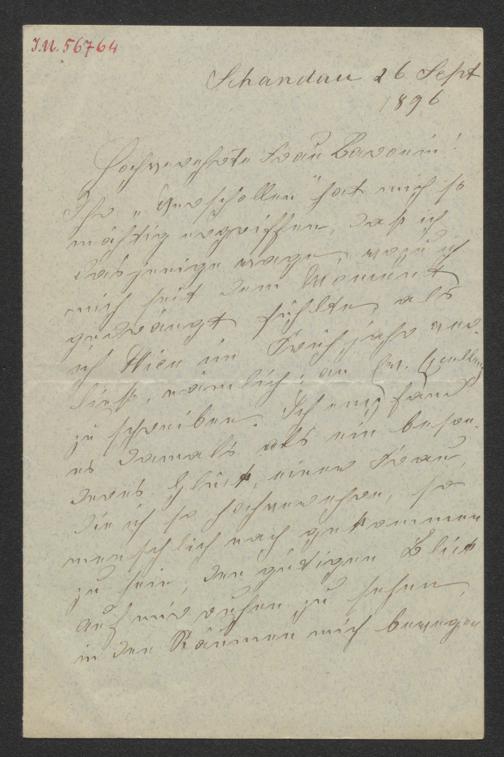 I.N. 56764
Schandau 26 Sept
1896
Hochverehrte Frau Baronin!
Ihr "Verschollen" hat mich so
mächtig ergriffen, daß ich
dasjenige wage, wozu ich
mich seit dem Moment
gedrängt fühlte, als
ich Wien im Frühjahr ver
ließ, nämlich: an
zu schreiben. Ich empfand
es damals als ein beson-
deres Glück, einer Frau,
die ich so hochverehre, so
menschlich nach gekommen
zu sein, den gütigen Blick
auf mir ruhen zu sehen,
in den Räumen mich bewegen